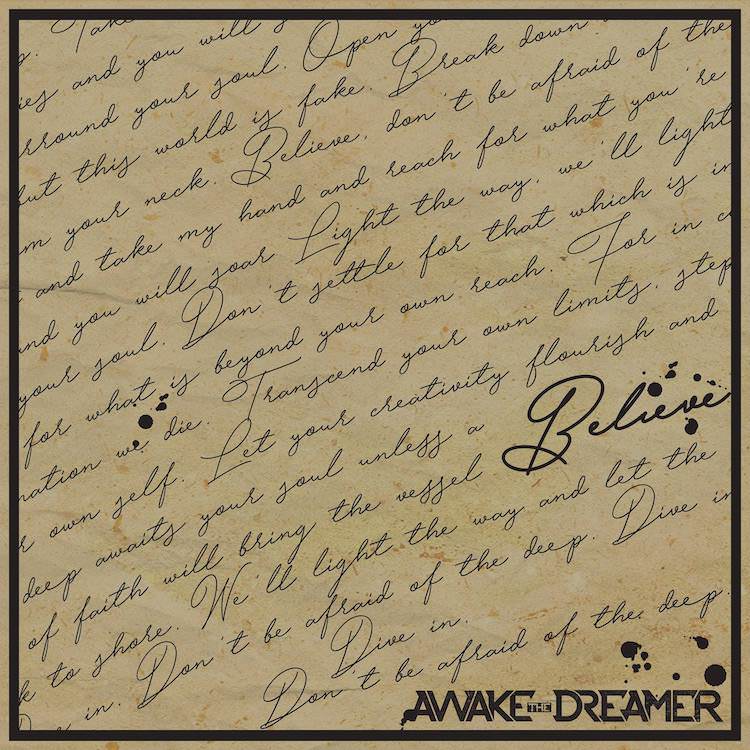 Take
ies and you will s
rround your soul. Open yo
ut this world is fake. Break down
m your neck. Believe, don't be afraid of the
and take my hand and reach for what you're
nd you will soar Light the way, we'll light
your soul. Don't settle for that which is in
for what is beyond your own reach. For in c
nation we die. Transcend your own limits, step
r own self. Let your creativity flourish and
deep awaits your soul unless a Believe
of faith will bring the vessel
k to shore. We'll light the way and let the
e in. Don't be afraid of the deep. Dive in
Dive in.
Don't be afraid of the deep.
AWAKE THE DREAMER